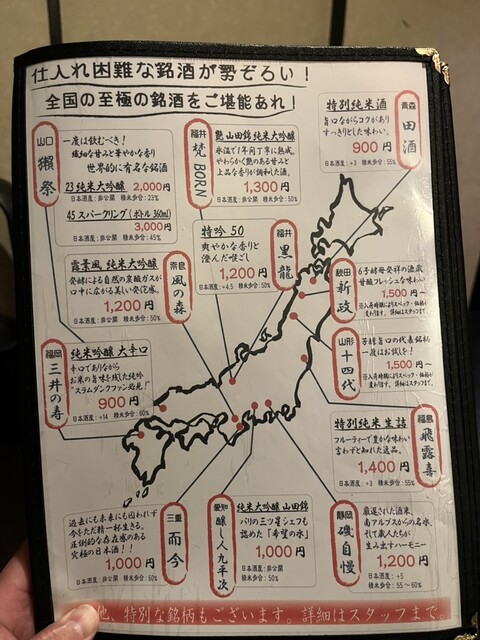 仕入れ困難な銘酒が勢ぞろい！
全国の至極の銘酒をご堪能あれ！
青森
田酒
特別純米酒
旨口ながらコクがあり
すっきりとした味わい。
900円
日本酒度：+3 精米歩合：55%
山口
獺祭
一度は飲むべき！
繊細な甘みと華やかな香り
世界的に有名な銘酒
23 純米大吟醸 2,000円
日本酒度：非公開 精米歩合：23%
45 スパークリング(ボトル 360ml)
3,000円
日本酒度：非公開 精米歩合：45%
福井
梵 BORN
艶 山田錦 純米大吟醸
氷温で1年間丁寧に熟成
やわらかく艶のある甘みと
上品な香りが調和した酒。
1,300円
日本酒度：非公開 精米歩合：50%
福井
黒龍
特吟 50
爽やかな香りと
澄んだ喉ごし
1,200円
日本酒度：+4.5 精米歩合：50%
奈良
風の森
露葉風 純米大吟醸
発酵による自然の炭酸ガスが
口中に広がる美しい発泡感。
1,200円
日本酒度：非公開 精米歩合：50%
秋田
新政
6号酵母発祥の酒蔵
甘酸フレッシュな味わい
1,500円～
※入荷時期によりスペック・価格が
変わります。詳細はスタッフまで。
山形
十四代
芳醇旨口の代表銘柄
一度はお試しを！
1,500円～
※入荷時期によりスペック・価格が
変わります。詳細はスタッフまで。
福岡
三井の寿
純米吟醸 大辛口
辛口でありながら
お米の旨味を残した純吟
"スラムダンクファン必見！"
900円
日本酒度：+14 精米歩合：60%
福島
飛露喜
特別純米 生詰
フルーティーで豊かな味わい
言わずと知れた逸品。
1,400円
日本酒度：+3 精米歩合：55%
三重
而今
過去にも未来にも囚われず
今をただ精一杯生きる。
圧倒的な存在感のある
究極の日本酒！！
1,000円
日本酒度：非公開 精米歩合：60%
愛知
醸し人九平次
純米大吟醸 山田錦
パリの三ツ星シェフも
認めた「希望の水」
1,000円
日本酒度：非公開 精米歩合：50%
静岡
磯自慢
厳選された酒米、
南アルプスからの名水、
そして蔵人たちが
生み出すハーモニー
1,200円
日本酒度：+5
精米歩合：55～60%
他、特別な銘柄もございます。詳細はスタッフまで。